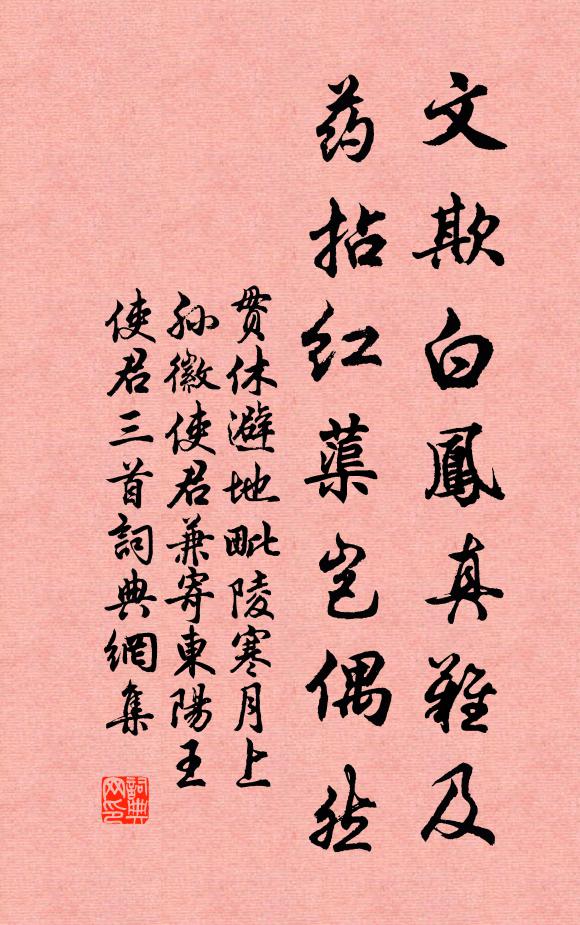 文欺白鳳真難及
药拈红蕖岂偶然
贯休避地毗陵寒月上
孙徽使君兼寄東陽王
使君三首詞典網集
詞典
网印